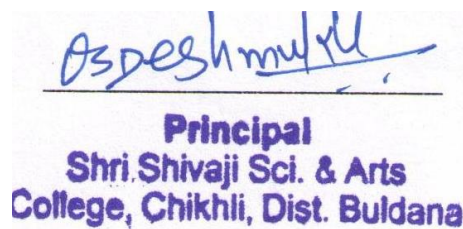 Principal
Shri.Shivaji Sci. & Arts
College, Chikhli, Dist. Buldana